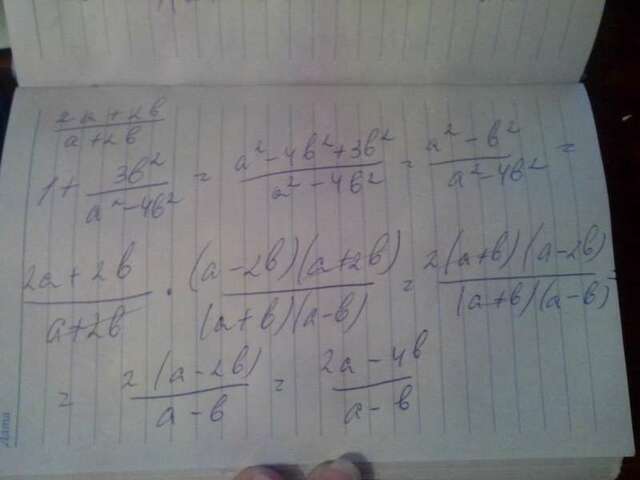 2a+2b
a+2b
1+ 3b² / a²-4b² = a²-4b²+3b² / a²-4b² = a²-b² / a²-4b² =
2a+2b / a+2b · (a-2b)(a+2b) / (a+b)(a-b) = 2(a+b)(a-2b) / (a+b)(a-b) =
= 2(a-2b) / a-b = 2a-4b / a-b
Дата